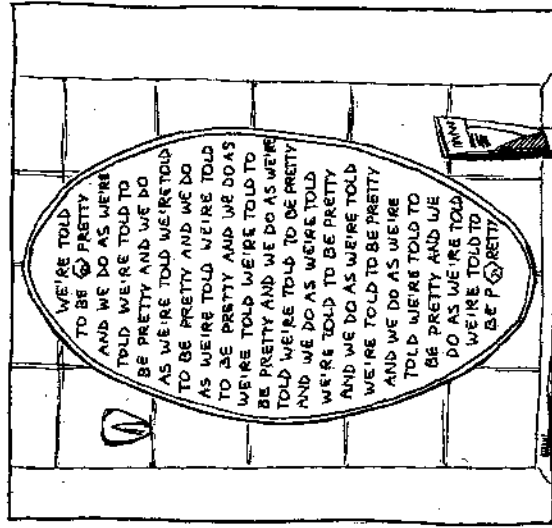 WE'RE TOLD
TO BE PRETTY
AND WE DO AS WE'RE
TOLD WE'RE TOLD TO
BE PRETTY AND WE DO
AS WE'RE TOLD WE'RE TOLD
TO BE PRETTY AND WE DO
AS WE'RE TOLD WE'RE TOLD
TO BE PRETTY AND WE DO AS
WE'RE TOLD WE'RE TOLD TO
BE PRETTY AND WE DO AS WE'RE
TOLD WE'RE TOLD TO BE PRETTY
AND WE DO AS WE'RE TOLD
WE'RE TOLD TO BE PRETTY
AND WE DO AS WE'RE TOLD
WE'RE TOLD TO BE PRETTY
AND WE DO AS WE'RE
TOLD WE'RE TOLD TO
BE PRETTY AND WE
DO AS WE'RE TOLD
WE'RE TOLD TO
BE P RETTY